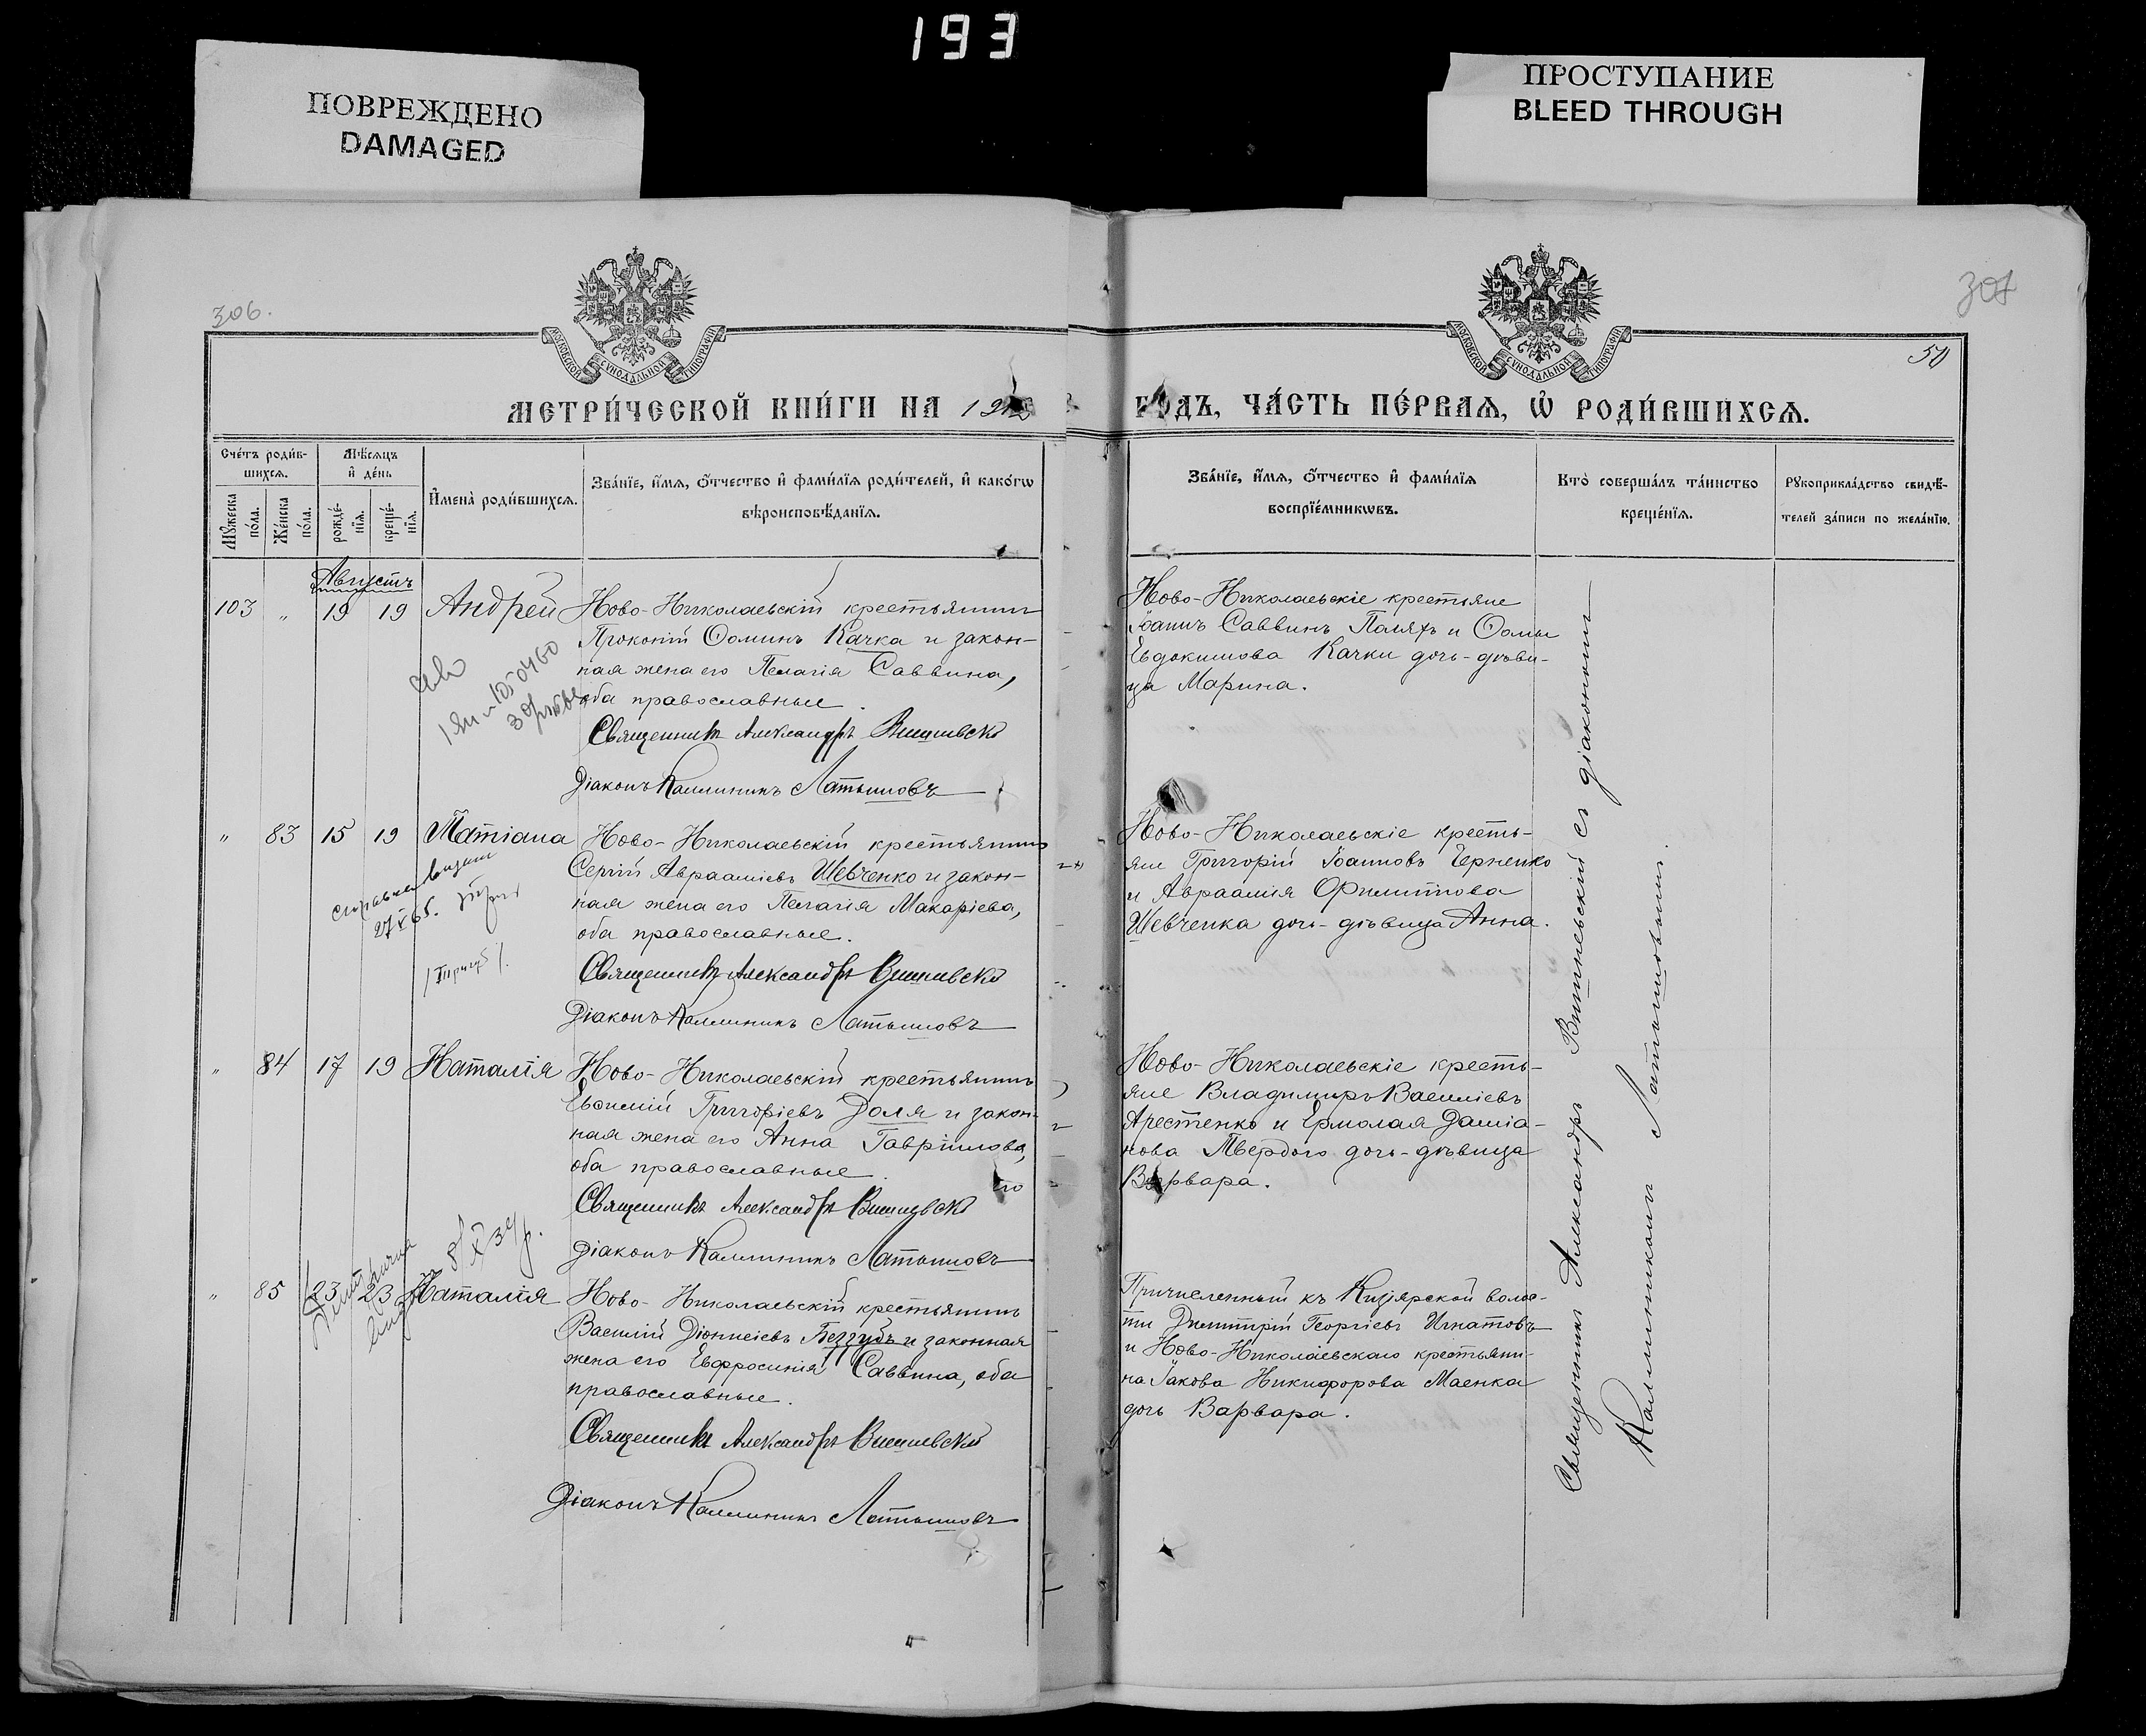 193
ПОВРЕЖДЕНО
DAMAGED
ПРОСТУПАНИЕ
BLEED THROUGH
306.
307
50
МОСКОВСКОЙ СѴНОДАЛЬНОЙ ТИПОГРАФІИ
МОСКОВСКОЙ СѴНОДАЛЬНОЙ ТИПОГРАФІИ
МЕТРИ́ЧЕСКОЙ КНИ́ГИ НА 19
ГОДЪ, ЧА́СТЬ ПЕ́РВАѦ, Ѡ҆ РОДИ́ВШИХСѦ.
Сче́тъ роди́в-
шихсѧ.
Мѣ́сѧцъ
и҆ де́нь
Мꙋжеска
по́ла.
Же́нска
по́ла.
рожде́-
нїѧ.
креще́-
нїѧ.
И҆мена̀ роди́вшихсѧ.
Зва́нїе, и҆́мѧ, ѻ҆́тчество и҆ фами́лїѧ роди́телей, и҆ како́гѡ
вѣроисповѣ́данїѧ.
Зва́нїе, и҆́мѧ, ѻ҆́тчество и҆ фами́лїѧ
воспрїе́мникѡвъ.
Кто̀ соверша́лъ та́инство
креще́нїѧ.
Рꙋкоприкла́дство свидѣ́-
телей за́писи по жела́нїю.
Августъ
103 " 19 19 Андрей
Ново-Николаевскій крестьянинъ
Прокопій Ѳоминъ Качка и закон-
ная жена его Пелагія Саввина,
оба православные.
Священникъ Александръ Вишневскій
Діаконъ Каллиникъ Латышовъ
Ново-Николаевскіе крестьяне
Іоаннъ Саввинъ Поляхъ и Ѳомы
Евдокимова Качки дочь-дѣви-
ца Марина.
" 83 15 19 Татіана
27 X 65.
Ново-Николаевскій крестьянинъ
Сергій Авраамієвъ Шевченко и закон-
ная жена его Пелагія Макаріева,
оба православные.
Священникъ Александръ Вишневскій
Діаконъ Каллиникъ Латышовъ
Ново-Николаевскіе кресть-
яне Григорій Іоанновъ Черненко
и Авраамія Филиппова
Шевченка дочь-дѣвица Анна.
" 84 17 19 Наталія
Ново-Николаевскій крестьянинъ
Евѳимій Григоріевъ Доля и закон-
ная жена его Анна Гавріилова,
оба православные.
Священникъ Александръ Вишневскій
Діаконъ Каллиникъ Латышовъ
Ново-Николаевскіе кресть-
яне Владимиръ Василіевъ
Арестенко и Ермолая Даміа-
нова Твердого дочь-дѣвица
Варвара.
" 85 23 23 Наталія
Ново-Николаевскій крестьянинъ
Василій Діонисіевъ Беззубъ и законная
жена его Евфросинія Саввина, оба
православные.
Священникъ Александръ Вишневскій
Діаконъ Каллиникъ Латышовъ
Причисленный къ Кизіярской волос-
ти Димитрій Георгіевъ Игнатовъ
и Ново-Николаевскаго крестьяни-
на Іакова Никифорова Маенка
дочь Варвара.
Священникъ Александръ Вишневскій съ діакономъ
Каллиникомъ Латышовымъ.